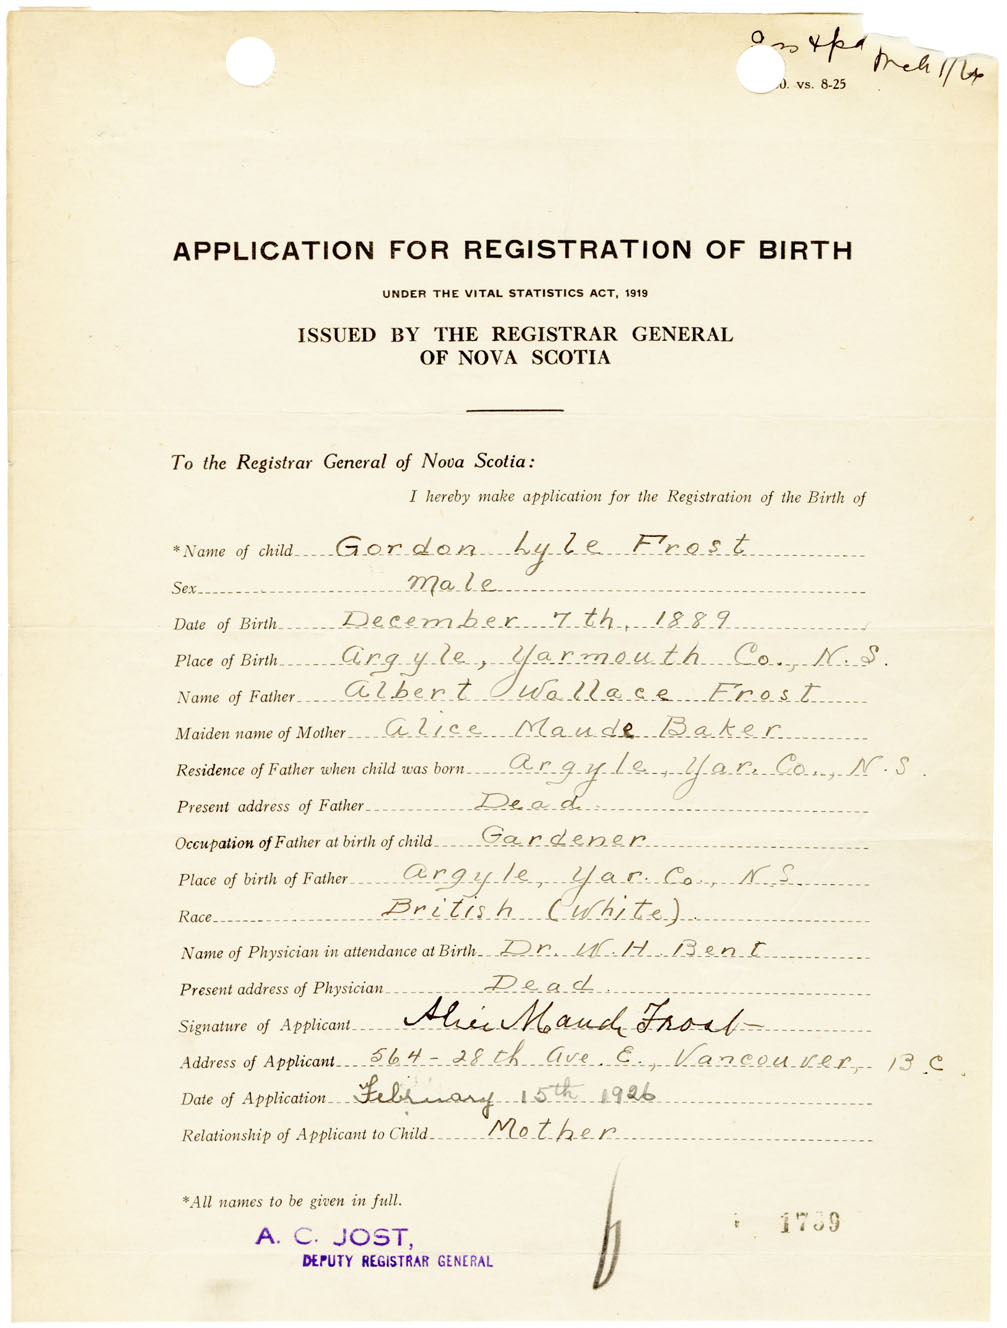 & pd Mch 1/26
0. vs. 8-25
APPLICATION FOR REGISTRATION OF BIRTH
UNDER THE VITAL STATISTICS ACT, 1919
ISSUED BY THE REGISTRAR GENERAL
OF NOVA SCOTIA
To the Registrar General of Nova Scotia:
I hereby make application for the Registration of the Birth of
*Name of child Gordon Lyle Frost
Sex Male
Date of Birth December 7th, 1889
Place of Birth Argyle, Yarmouth Co., N.S.
Name of Father Albert Wallace Frost
Maiden name of Mother Alice Maude Baker
Residence of Father when child was born Argyle, Yar. Co., N.S.
Present address of Father Dead.
Occupation of Father at birth of child Gardener
Place of birth of Father Argyle, Yar. Co., N.S.
Race British (White).
Name of Physician in attendance at Birth Dr. W. H. Bent
Present address of Physician Dead.
Signature of Applicant Alice Maude Frost
Address of Applicant 564 - 28th Ave. E., Vancouver, B.C.
Date of Application February 15th 1926
Relationship of Applicant to Child Mother
*All names to be given in full.
A. C. JOST,
DEPUTY REGISTRAR GENERAL
1739